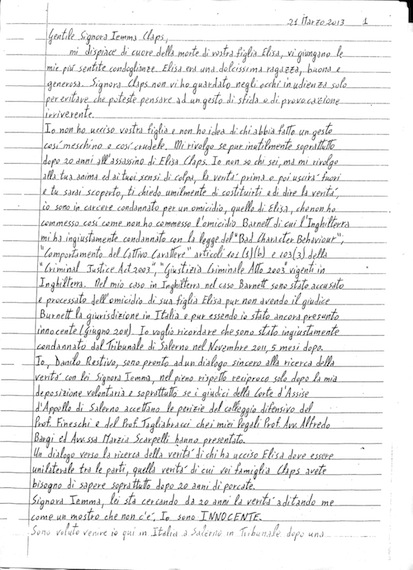 21 Marzo 2013 1
Gentile Signora Iemma Claps,
mi dispiace di cuore della morte di vostra figlia Elisa, vi giungano le
mie più sentite condoglianze. Elisa era una dolcissima ragazza, buona e
generosa. Signora Claps non vi ho guardato negli occhi in udienza solo
per evitare che poteste pensare ad un gesto di sfida e di provocazione
irriverente.
Io non ho ucciso vostra figlia e non ho idea di chi abbia fatto un gesto
così meschino e così crudele. Mi rivolgo se pur inutilmente soprattutto
dopo 20 anni all'assassino di Elisa Claps. Io non so chi sei, ma mi rivolgo
alla tua anima ed ai tuoi sensi di colpa, la verità prima o poi uscirà fuori
e tu sarai scoperto, ti chiedo umilmente di costituirti e di dire la verità,
io sono in carcere condannato per un omicidio, quello di Elisa, che non ho
commesso così come non ho commesso l'omicidio Barnett di cui l'Inghilterra
mi ha ingiustamente condannato con la legge del "Bad Character Behaviour",
"Comportamento del Cattivo Carattere" articoli 101 (1)(b) e 103(3) della
"Criminal Justice Act 2003", "Giustizia Criminale Atto 2003" vigenti in
Inghilterra. Del mio caso in Inghilterra nel caso Barnett sono stato accusato
e processato dell'omicidio di sua figlia Elisa pur non avendo il giudice
Burnett la giurisdizione in Italia e pur essendo io stato ancora presunto
innocente (Giugno 2011). Io voglio ricordare che sono stato ingiustamente
condannato dal Tribunale di Salerno nel Novembre 2011, 5 mesi dopo.
Io, Danilo Restivo, sono pronto ad un dialogo sincero alla ricerca della
verità con lei Signora Iemma, nel pieno rispetto reciproco solo dopo la mia
deposizione volontaria e soprattutto se i giudici della Corte d'Assise
d'Appello di Salerno accettano le perizie del collegio difensivo del
Prof. Fineschi e del Prof. Tagliabracci che i miei legali Prof. Avv. Alfredo
Bargi ed Avv.ssa Marzia Scarpelli hanno presentato.
Un dialogo verso la ricerca della verità di chi ha ucciso Elisa deve essere
unilaterale tra le parti, quella verità di cui voi famiglia Claps avete
bisogno di sapere soprattutto dopo 20 anni di porcate.
Signora Iemma, lei sta cercando da 20 anni la verità additando me
come un mostro che non c'è, Io sono INNOCENTE.
Sono voluto venire io qui in Italia a Salerno in Tribunale dopo una